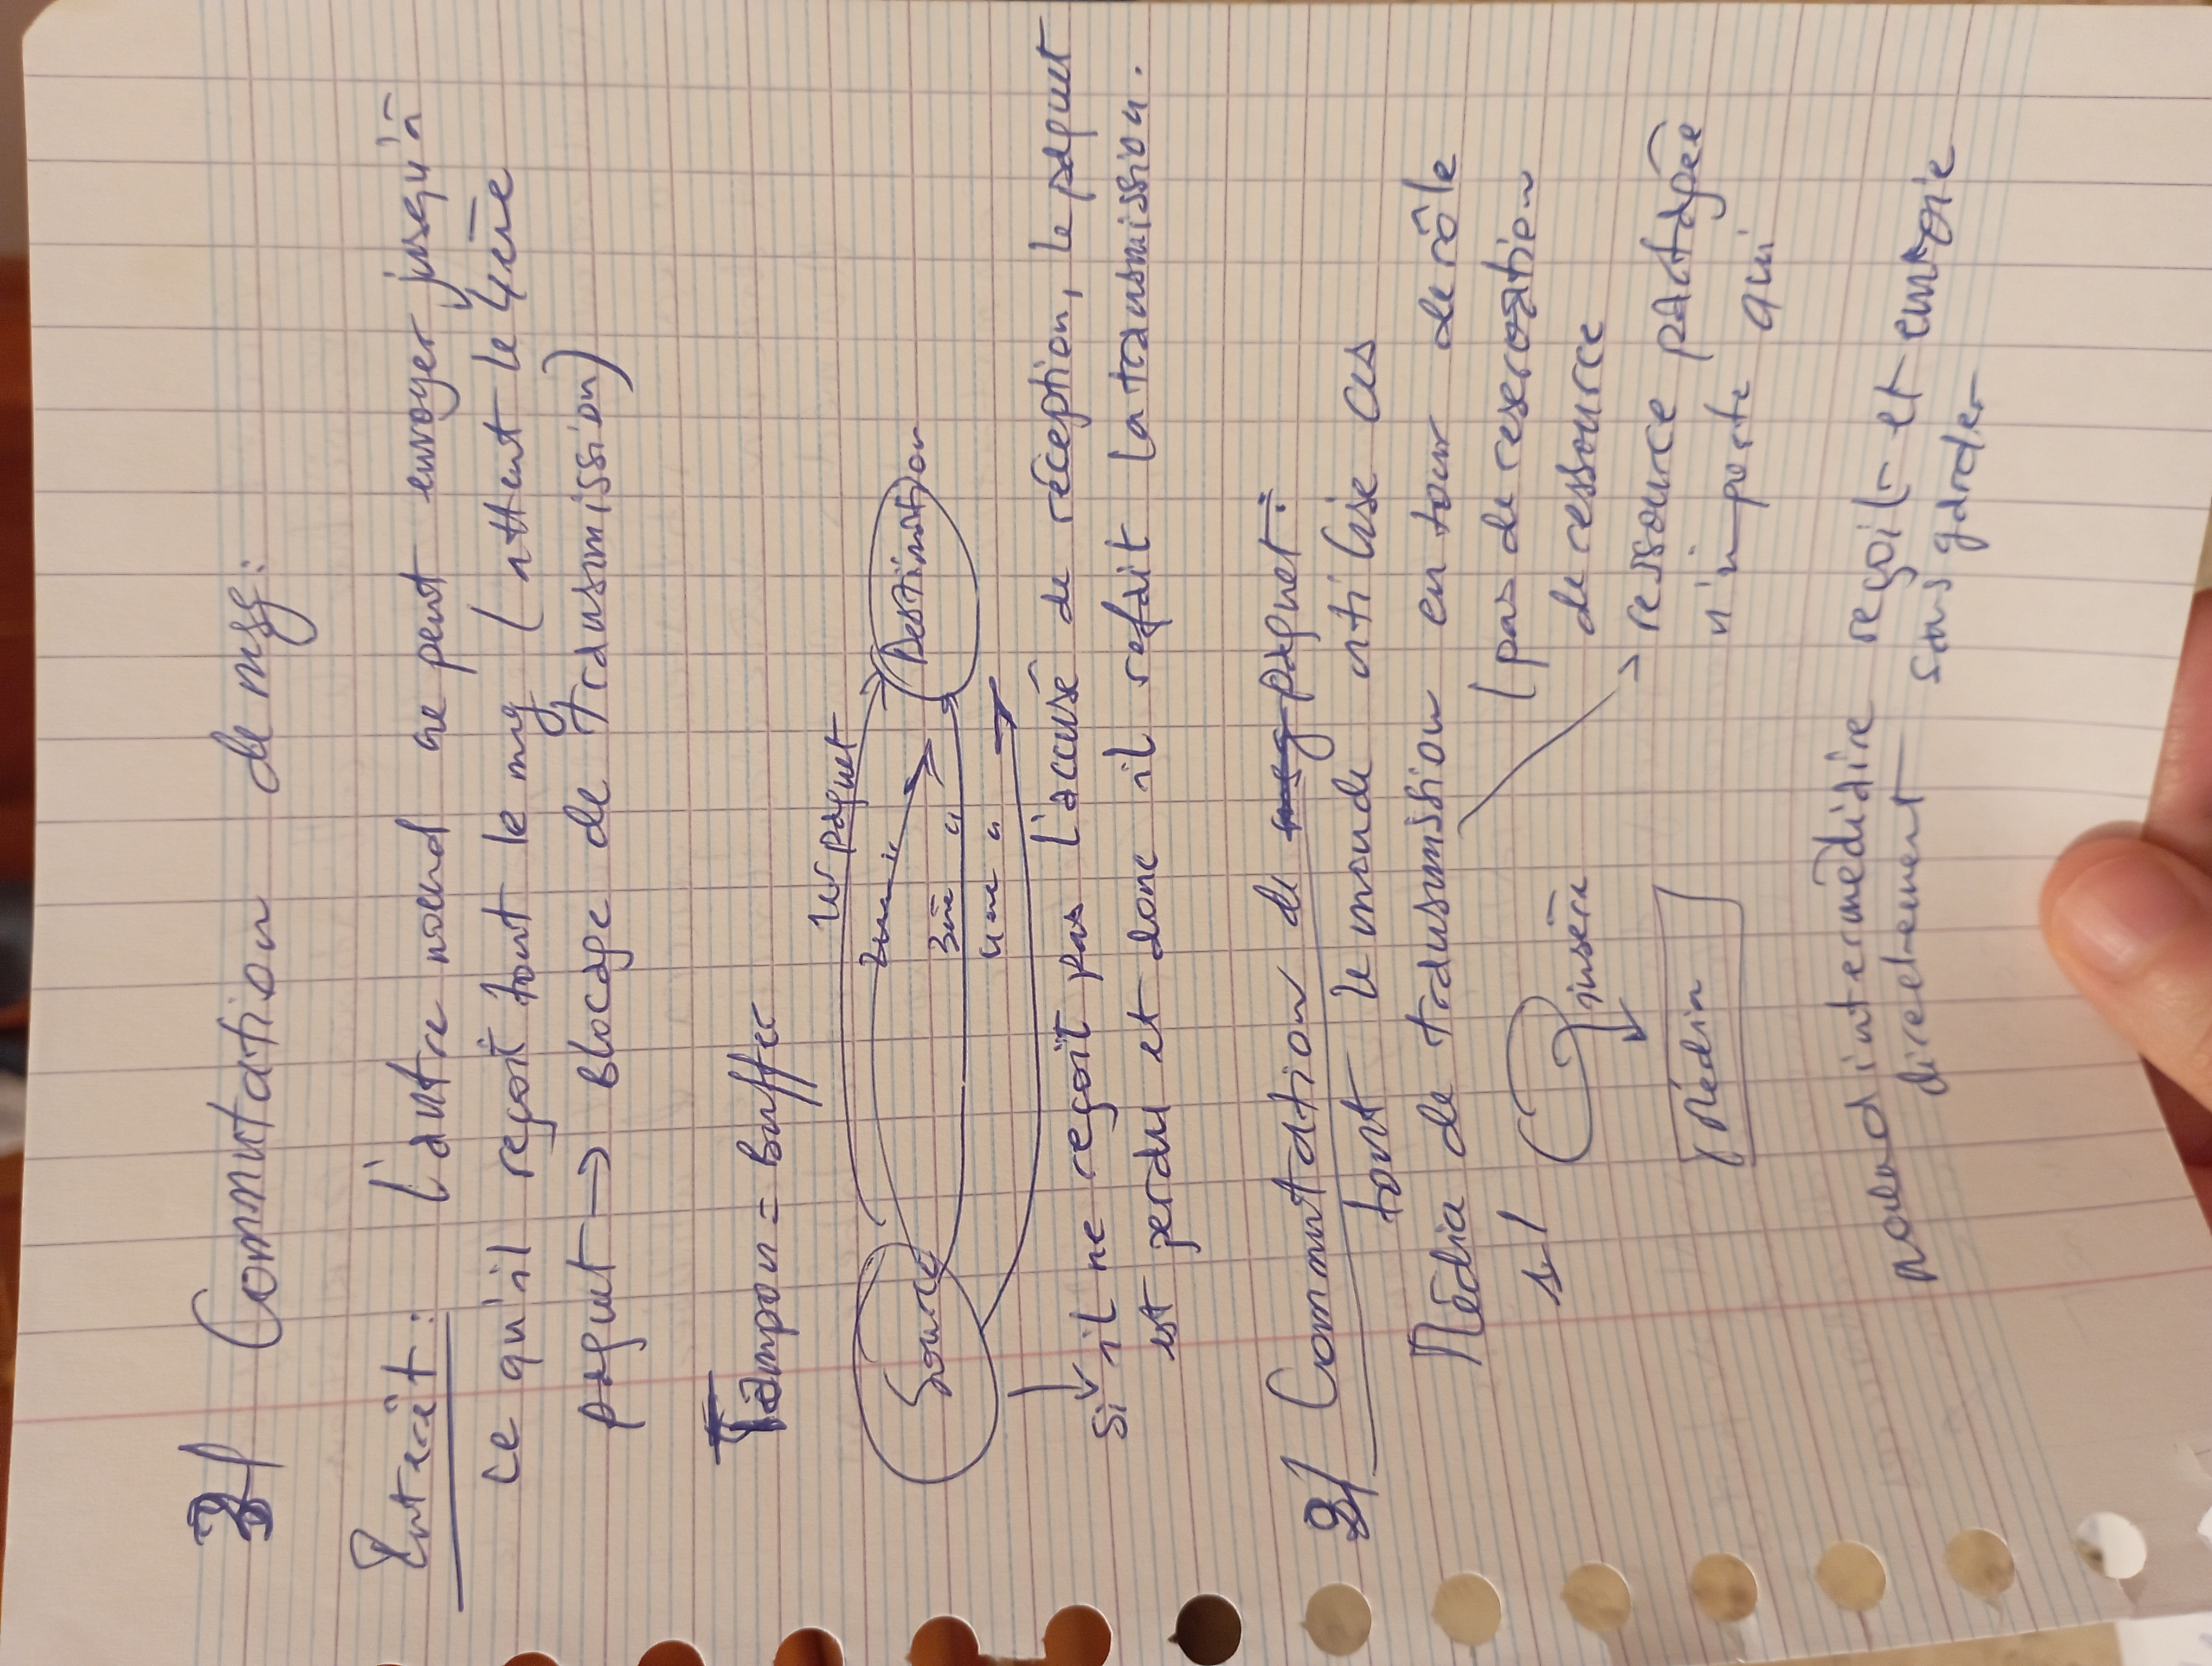 3/ Commutation de msg:
Interêt: l'autre noeud ne peut envoyer jusqu'à
ce qu'il reçoit tout le msg (attent le 4ère
paquet → Blocage de transmission)
Tampon = Buffer
1er paquet
2ème "
Source
Destination
3ère "
4ère "
si il ne reçoit pas l'accusé de réception, le paquet
est perdu et donc il refait la transmission.
2/ Commutation de paquet:
tout le monde utilise ces
Média de transmission en tour de rôle
(pas de reservation
1/
insère
de ressource
ressource partagée
Média
n'importe qui
noeud intermédiaire reçoit et envoie
directement sans garder